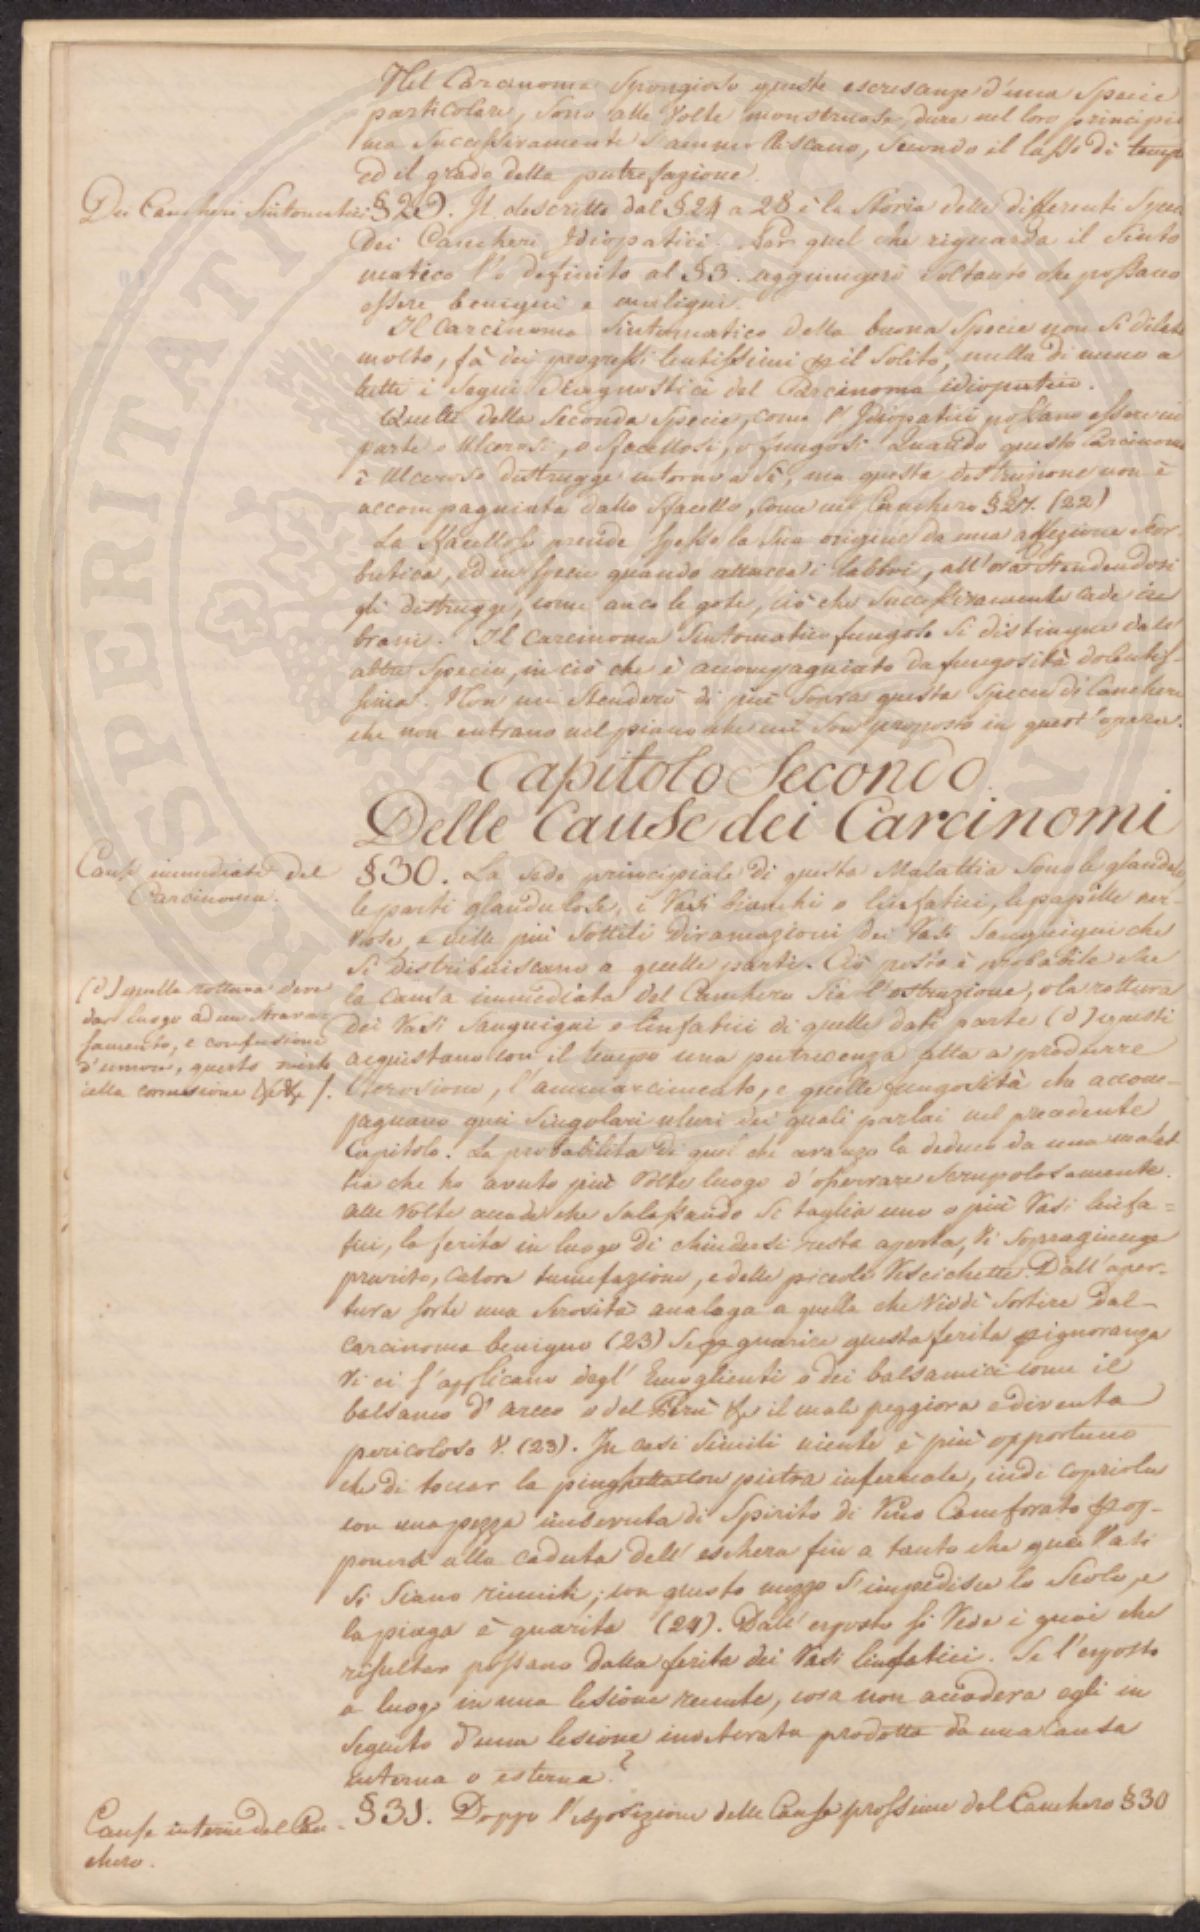 Nel Carcinoma Spongioso queste escrescenze d'una Specie
particolare, sono alle Volte monstruose, dure nel loro principio
ma Successivamente s'ammorbiscano, Secondo il lasso di tempo
ed il grado della putrefazione.
Dei Cancheri Sintomatici
§ 29. Il descritto dal § 24 a 28 è la Storia delle differenti Specie
Dei Cancheri Idiopatici. Per quel che riguarda il Sinto
matico l'o definito al § 3. aggiungerò Soltanto che possano
essere benigni e maligni.
Il Carcinoma Sintomatico della buona Specie non Si dilata
molto, fà dei progressi lentissimi il Solito, nulla di meno a
tutti i Segni Diagnostici del Carcinoma idiopatico.
Quelli della Seconda Specie, come l'Idiopatici possano essere in
parte o Ulcerosi, o Sfacellosi, o fungosi. Quando questo Carcinoma
è Ulceroso distrugge intorno a Sè, ma questa destruzione non è
accompagniata dallo Sfacello, come nel Canchero § 27. (22)
Lo Sfacelloso prende spesso la Sua origine da una affezione Scor-
butica, ed in specie quando attacca i labbri, all'ora Stendendosi
gli distrugge, come anco le gote, ciò che Successivamente cade in
brani. Il Carcinoma Sintomatico fungoso Si distingue dalle
altre Specie, in ciò che è accompagniato da fungosità dolentis-
sima. Non mi Stenderò di più Sopra questa Specie di Cancheri
che non entrano nel piano che mi Son proposto in quest'opera.
Capitolo Secondo
Delle Cause dei Carcinomi
Cause immediate del
Carcinoma.
§ 30. La Sede principiale di questa Malattia Sono le glandule,
le parti glandulose, i Vasi bianchi o linfatici, le papille ner-
vose, e nelle più Sottili Diramazioni dei Vasi Sanguigni che
Si distribuiscano a quelle parti. Ciò posto è probabile che
la Causa immediata del Canchero Sia l'ostruzione, o la rottura
dei Vasi Sanguigni o linfatici di quelle date parte (d) questi
acquistano con il tempo una putrecenza atta a produrre
l'erosione, l'ammarcimento, e quelle fungosità che accom-
pagnano quei Singolari ulceri dei quali parlai nel precedente
Capitolo. La probabilità di quel che avanzo la deduco da una malat
tia che ho avuto più Volte luogo d'osservare Scrupolosamente.
(d) quella rottura deve
dar luogo ad un Strava-
samento, e confusione
d'umore, questo
alle Volte accade che Salassando Si taglia uno o più Vasi linfa-
tici, la ferita in luogo di chiudersi resta aperta, Vi Sopragiunge
prurito, calore tumefazione, e delle piccole Vescichette. Dall'aper-
tura Sorte una Serosità analoga a quella che Viddi Sortire Dal
carcinoma benigno (23) Se guarire questa ferita ignoranza
Vi ci s'applicano degl'Emoglienti o dei balsamici come il
balsamo d'Arceo o del Perù il male peggiora e diventa
pericoloso V. (23). In casi Simili niente è più opportuno
che di toccar la con pietra infernale, indi copriola
con una pezza imbevuta di Spirito di Vino Camforato op-
ponersi alla caduta dell'eschera fin a tanto che quei Vasi
Si Siano riuniti; con questo mezzo S'impedisce lo Scolo, e
la piaga è guarita (24). Dall'esposto Si Vede i guai che
risultar possano dalla ferita dei Vasi linfatici. Se l'esposto
a luogo in una lesione recente, cosa non accaderà egli in
Seguito d'una lesione inveterata prodotta da una Causa
interna o esterna?
Cause interne del Can-
chero.
§ 31. Doppo l'esposizione delle Cause prossime del Canchero § 30